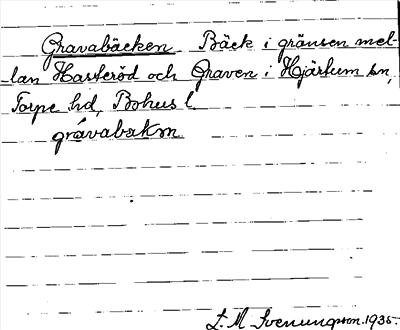 Gravabäcken Bäck i gränsen mel-
lan Hasteröd och Graven i Hjärtum sn,
Torpe hd, Bohus l.
grávabakm
L. M. Svenungsson. 1935.